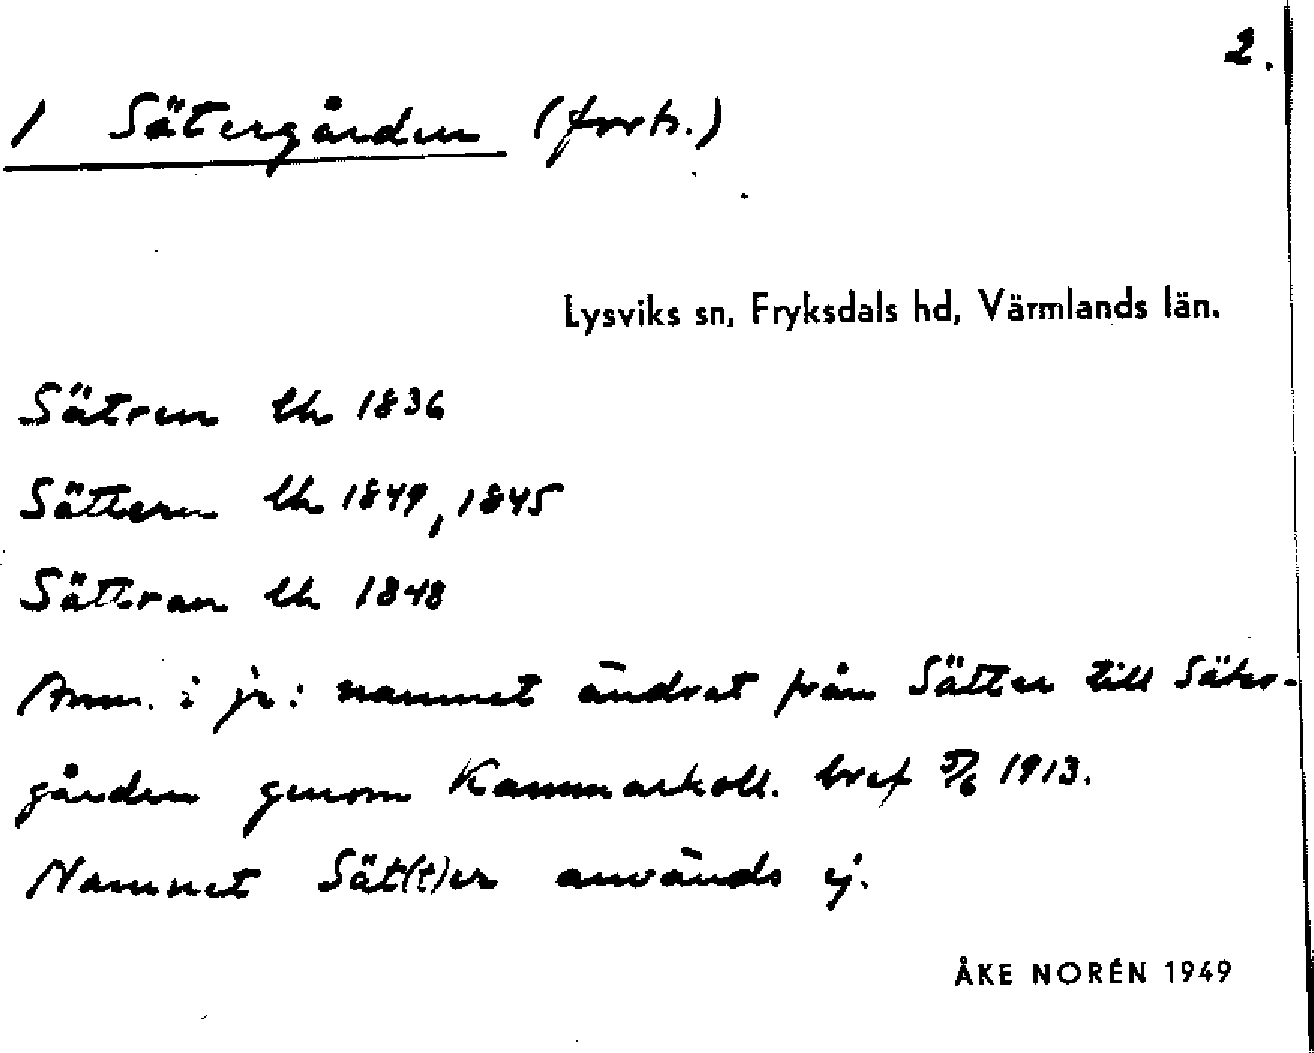 2.
/ Sätergården (forts.)
Lysviks sn, Fryksdals hd, Värmlands län.
Sätren lh 1836
Sättern lh 1849, 1845
Sättran lh 1848
Anm. i jr: namnet ändrat från Sätter till Säter-
gården genom Kammarkoll. bref 5/6 1913.
Namnet Sät(t)er används ej.
ÅKE NORÉN 1949